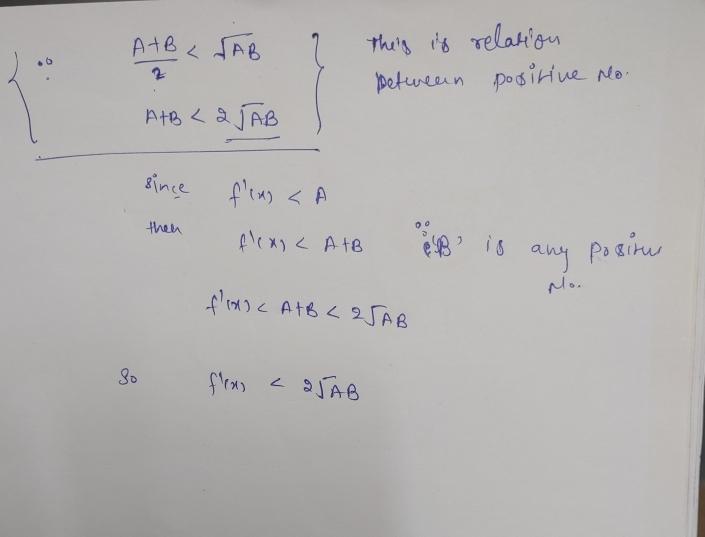 ∵ A+B/2 < √AB This is relation
A+B < 2√AB between positive No.
since f'(x) < A
then f'(x) < A+B ∵ 'B' is any positive No.
f'(x) < A+B < 2√AB
So f'(x) < 2√AB